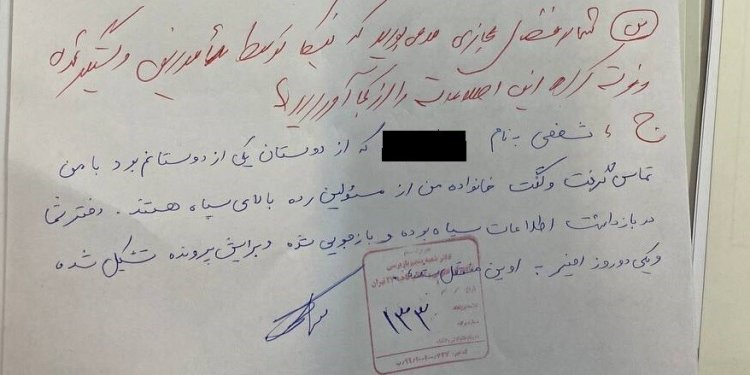 س) شما در فضای مجازی مدعی بودید که نیکا توسط مامورین دستگیر شده
و فوت کرده این اطلاعات را از کجا آوردید؟
ج: شخصی به نام که از دوستان یکی از دوستانم بود با من
تماس گرفت و گفت خانواده من از مسئولین رده بالای سپاه هستند. دختر شما
در بازداشت اطلاعات سپاه بوده و بازجویی شده و برایش پرونده تشکیل شده
و یکی دو روز اخیر به اوین منتقل
۱۳۳